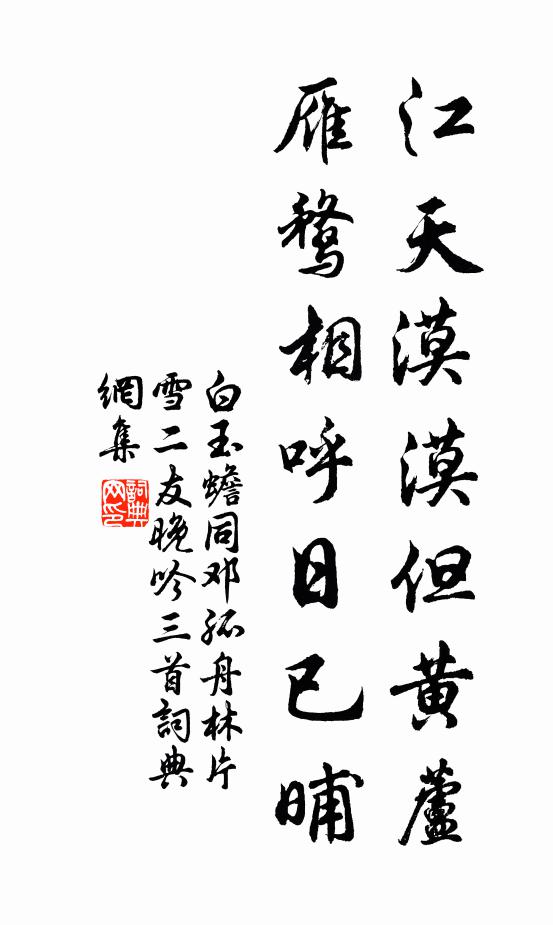 江天漠漠但黄蘆
雁鶩相呼日已晡
白玉蟾同邓孤舟林片
雪二友晚吟三首詞典
網集
詞典网印